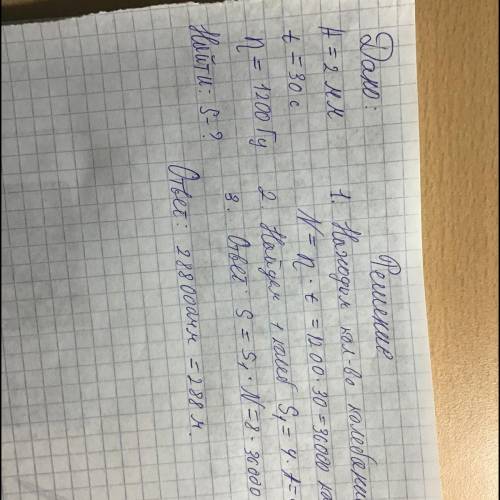 Дано:
А = 2 мм
t = 30 с
n = 1200 Гц
Найти: S - ?
Решение
1. Находим кол-во колебани
N = n · t = 1200 · 30 = 36000 ко
2 Найдем 1 колеб S₁ = 4 · A =
3. Ответ S = S₁ · N = 8 · 36000
Ответ: 288000мм = 288 м.